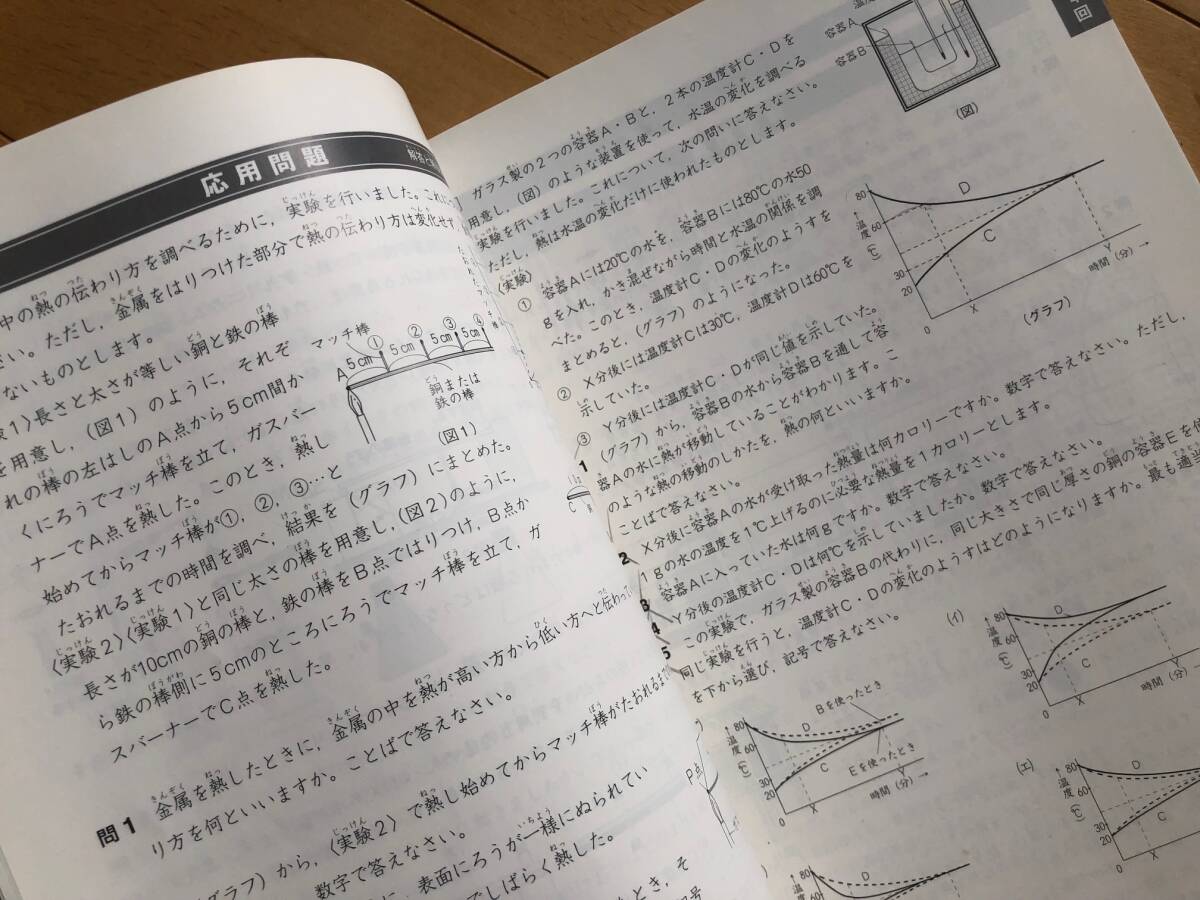 応用問題
解答と
中の熱の伝わり方を調べるために，実験を行いました。これに
さい。ただし，金属をはりつけた部分で熱の伝わり方は変化せず
ないものとします。
験1〉長さと太さが等しい銅と鉄の棒
を用意し，（図1）のように，それぞ
れの棒の左はしのA点から5cm間か
くにろうでマッチ棒を立て，ガスバー
ナーでA点を熱した。このとき，熱し
始めてからマッチ棒が①，②，③…と
たおれるまでの時間を調べ，結果を（グラフ）にまとめた。
〈実験2〉〈実験1〉と同じ太さの棒を用意し，（図2）のように，
長さが10cmの銅の棒と，鉄の棒をB点ではりつけ，B点か
ら鉄の棒側に5cmのところにろうでマッチ棒を立て，ガ
スバーナーでC点を熱した。
マッチ棒
① ② ③ ④
A 5cm 5cm 5cm 5cm
銅または
鉄の棒
（図1）
問1 金属を熱したときに，金属の中を熱が高い方から低い方へと伝わって
り方を何といいますか。ことばで答えなさい。
グラフ）から，〈実験2〉で熱し始めてからマッチ棒がたおれるまで
数字で答えなさい。
に，表面にろうが一様にぬられてい
でしばらく熱した。
とき，そ
記号
回
ガラス製の2つの容器A・Bと，2本の温度計C・Dを
用意し，（図）のような装置を使って，水温の変化を調べる
実験を行いました。これについて，次の問いに答えなさい。
ただし，熱は水温の変化だけに使われたものとします。
〈実験〉
① 容器Aには20℃の水を，容器Bには80℃の水50
gを入れ，かき混ぜながら時間と水温の関係を調
べた。このとき，温度計C・Dの変化のようすを
まとめると，（グラフ）のようになった。
② X分後には温度計Cは30℃，温度計Dは60℃を
示していた。
③ Y分後には温度計C・Dが同じ値を示していた。
1 （グラフ）から，容器Bの水から容器Bを通して容
器Aの水に熱が移動していることがわかります。こ
のような熱の移動のしかたを，熱の何といいますか。
ことばで答えなさい。
2 X分後に容器Aの水が受け取った熱量は何カロリーですか。数字で答えなさい。ただし，
1gの水の温度を1℃上げるのに必要な熱量を1カロリーとします。
3 容器Aに入っていた水は何gですか。数字で答えなさい。
4 Y分後の温度計C・Dは何℃を示していましたか。数字で答えなさい。
5 この実験で，ガラス製の容器Bの代わりに，同じ大きさで同じ厚さの銅の容器Eを使
同じ実験を行うと，温度計C・Dの変化のようすはどのようになりますか。最も適当
を下から選び，記号で答えなさい。
容器A
容器B
（図）
80
60
30
20
↑温度（℃）
D
C
0 X Y
時間（分）→
（グラフ）
80
60
30
20
↑温度（℃）
Bを使ったとき
D
C
Eを使ったとき
0 X Y
時間（分）→
（イ）
80
60
30
20
↑温度（℃）
D
C
0 X
時間（分）
（エ）
80
60
30
20
↑温度（℃）
D
C
0 X
80
60
D
P点
C B